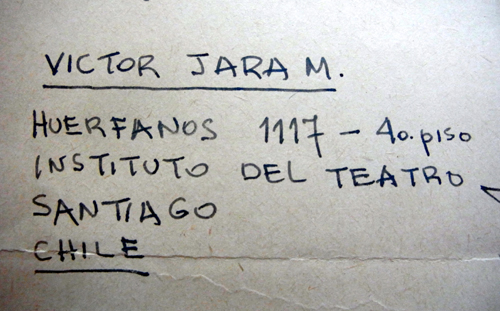 VICTOR JARA M.
HUERFANOS 1117 - 4o. piso
INSTITUTO DEL TEATRO
SANTIAGO
CHILE